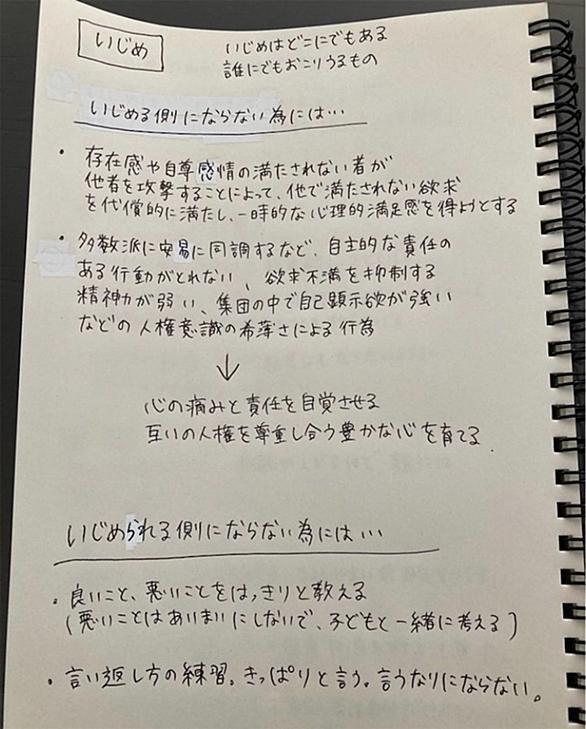 いじめ
いじめはどこにでもある
誰にでもおこりうるもの
いじめる側にならない為には…
・存在感や自尊感情の満たされない者が
他者を攻撃することによって、他で満たされない欲求
を代償的に満たし、一時的な心理的満足感を得ようとする
・多数派に安易に同調するなど、自主的な責任の
ある行動がとれない、欲求不満を抑制する
精神力が弱い、集団の中で自己顕示欲が強い
などの人権意識の希薄さによる行為
↓
心の痛みと責任を自覚させる
互いの人権を尊重し合う豊かな心を育てる.
いじめられる側にならない為には…
・良いこと、悪いことをはっきりと教える
(悪いことはあいまいにしないで、子どもと一緒に考える)
・言い返し方の練習。きっぱりと言う。言うなりにならない。